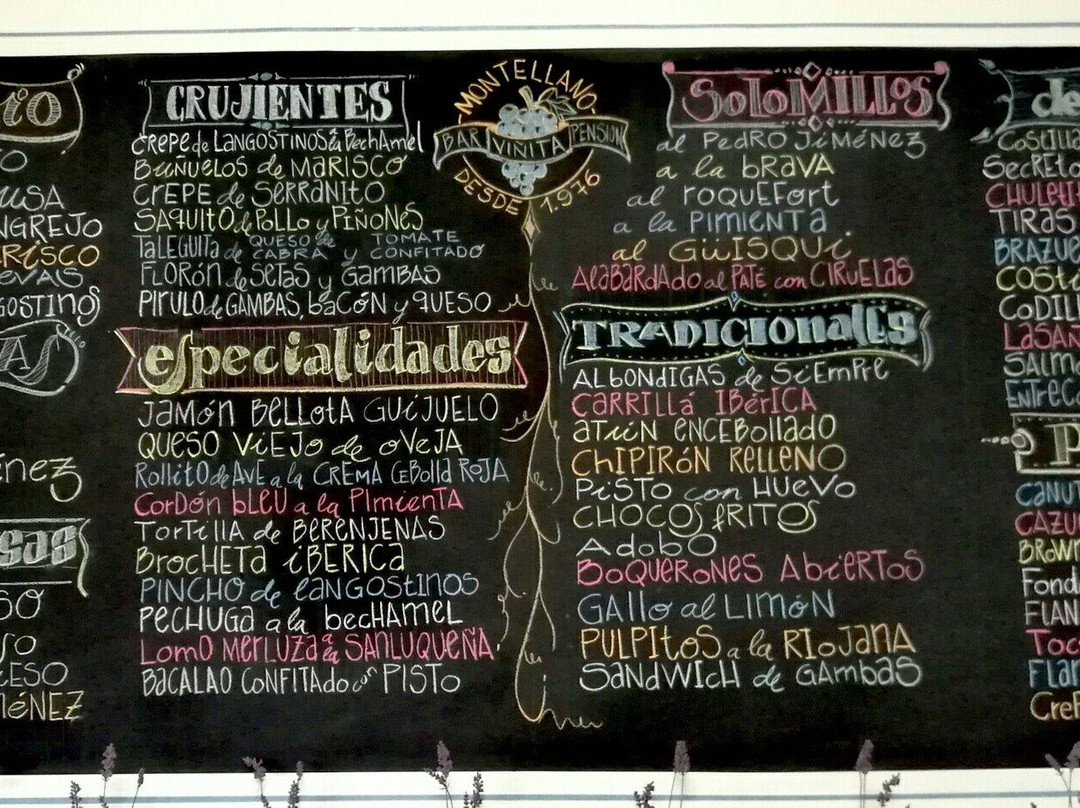 IO
O
USA
NGREJO
RISCO
EVAIS
GOSTINOS
AS
ÉNEZ
SAS
SO
SO
CESO
IÉNEZ
CRUJIENTES
CREPE de LANGOSTINOS a la BechAmel
BUÑUELOS de MARISCO
CREPE de SERRANITO
SAQUITO de POLLO y PIÑONES
TALEGUITA de QUESO de CABRA y TOMATE CONFITADO
FLORÓN de SETAS y GAMBAS
PIRULO de GAMBAS, bACÓN y QUESO
especialidades
JAMÓN BELLOTA GUIJUELO
QUESO VIEJO de OVEJA
ROLLITO DE AVE a la CREMA CEBOLLA ROJA
CORDÓN bLEU a la PIMIENTA
TORTILLA de BERENJENAS
BROCHETA IBERICA
PINCHO de LANGOSTINOS
PECHUGA a la becHAMEL
LOMO MERLUZA a la SANLUQUEÑA
BACALAO CONFITADO con PISTO
MONTELLANO
BAR VIÑITA PENSION
DESDE 1.976
SOLOMILLOS
al PEDRO JIMÉNEZ
a la bRAVA
al ROQUEFORT
a la PIMIENTA
al GÜISQUI
ALABARDADO al PATÉ con CIRUELAS
TRADICIONALES
ALbONDIGAS de SIEMPRE
CARRILLÁ IBÉRICA
ATÚN ENCEBOLLADO
CHIPIRÓN RELLENO
PISTO con HUEVO
CHOCOS fRITOS
AdobO
BOQUERONES AbiERTOS
GALLO al LIMÓN
PULPITOS a la RIOJANA
SANdWICH de GAMBAS
de
COSTILLA
SECRETO
CHULETI
TIRAS
BRAZUE
COSTI
CODILL
LASAÑ
SALMO
ENTREC
P
CANUT
CAZUE
BROWN
FOND
FLAN
TOC
FLAN
CREP